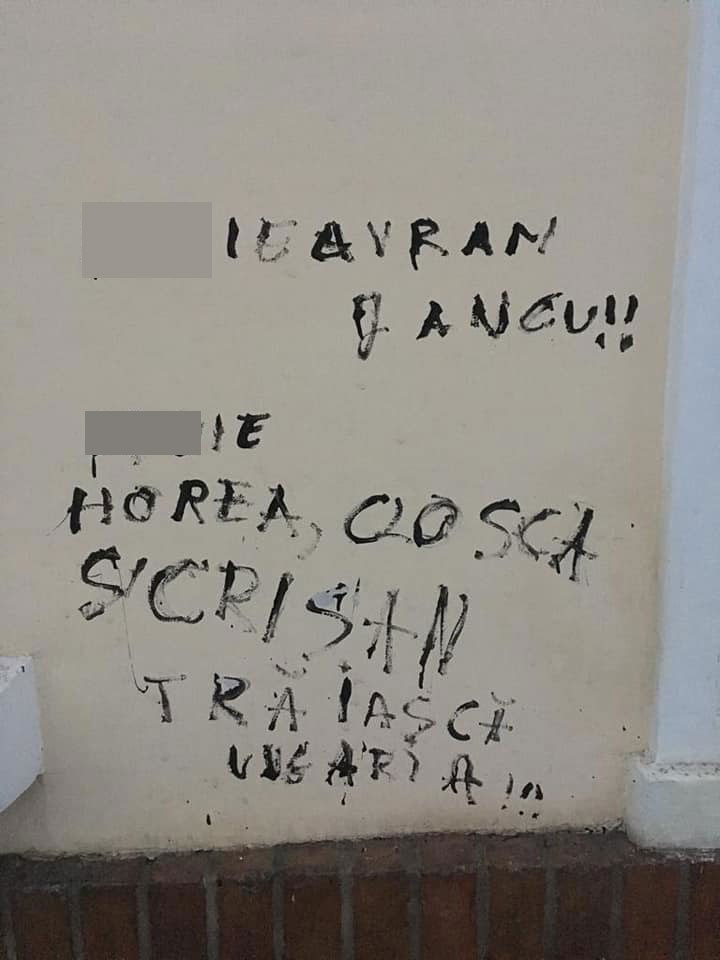 IE AVRAN
JANCU!!
IE
HOREA, CLOSCA
SI CRISAN
TRĂIASCĂ
UNGARIA!!!